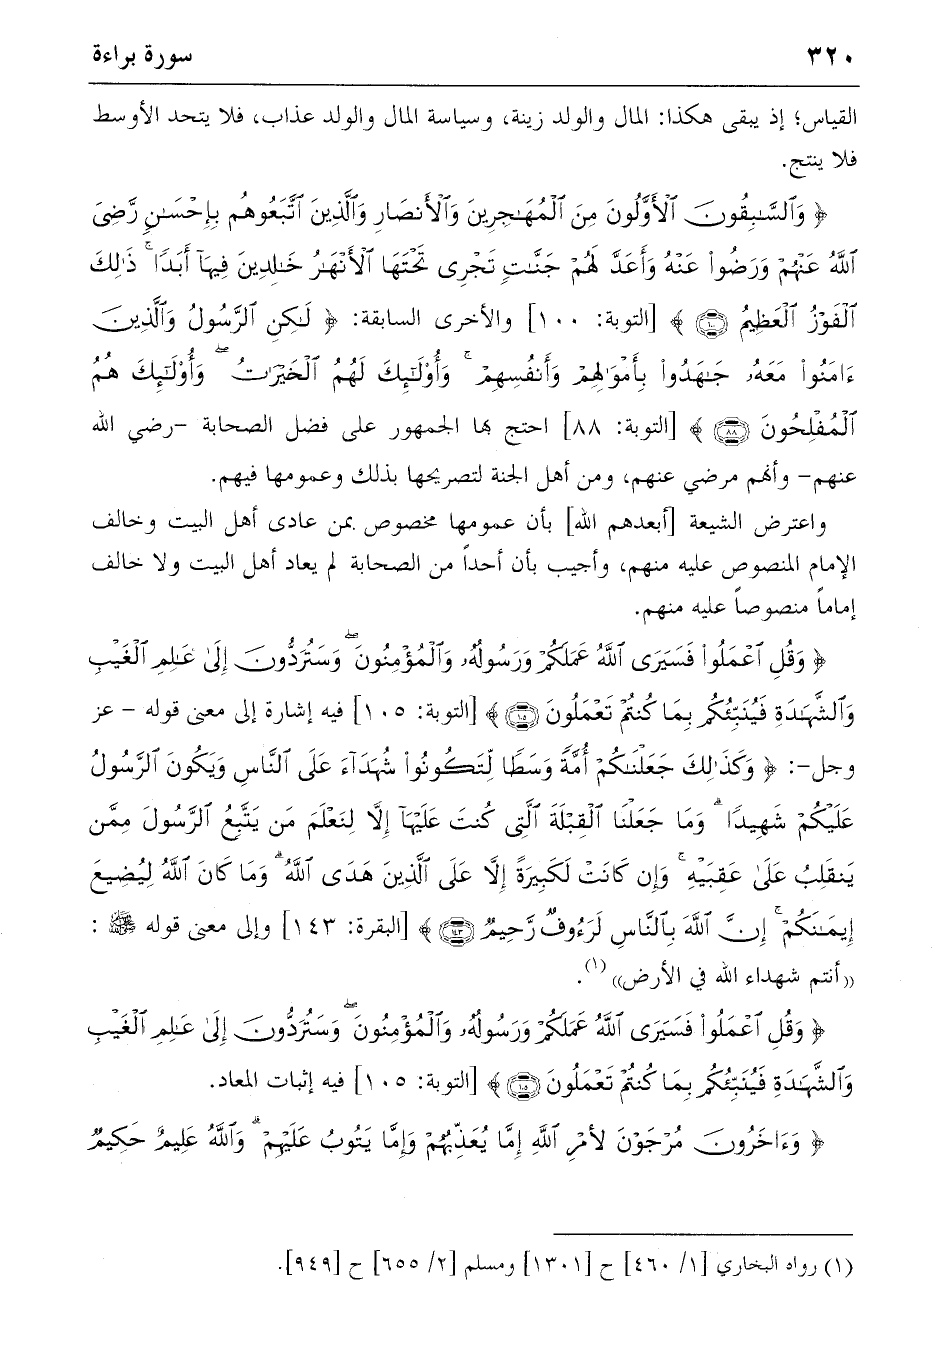 ٣٢٠ سورة براءة
القياس؛ إذ يبقى هكذا: المال والولد زينة، وسياسة المال والولد عذاب، فلا يتحد الأوسط
فلا ينتج.
﴿ وَٱلسَّٰبِقُونَ ٱلْأَوَّلُونَ مِنَ ٱلْمُهَٰجِرِينَ وَٱلْأَنصَارِ وَٱلَّذِينَ ٱتَّبَعُوهُم بِإِحْسَٰنٍ رَّضِىَ
ٱللَّهُ عَنْهُمْ وَرَضُوا۟ عَنْهُ وَأَعَدَّ لَهُمْ جَنَّٰتٍ تَجْرِى تَحْتَهَا ٱلْأَنْهَٰرُ خَٰلِدِينَ فِيهَآ أَبَدًا ۚ ذَٰلِكَ
ٱلْفَوْزُ ٱلْعَظِيمُ ١٠٠ ﴾ [التوبة: ١٠٠] والأخرى السابقة: ﴿ لَٰكِنِ ٱلرَّسُولُ وَٱلَّذِينَ
ءَامَنُوا۟ مَعَهُۥ جَٰهَدُوا۟ بِأَمْوَٰلِهِمْ وَأَنفُسِهِمْ ۚ وَأُو۟لَٰٓئِكَ لَهُمُ ٱلْخَيْرَٰتُ ۖ وَأُو۟لَٰٓئِكَ هُمُ
ٱلْمُفْلِحُونَ ٨٨ ﴾ [التوبة: ٨٨] احتج بها الجمهور على فضل الصحابة -رضي الله
عنهم- وأنهم مرضي عنهم، ومن أهل الجنة لتصريحها بذلك وعمومها فيهم.
واعترض الشيعة [أبعدهم الله] بأن عمومها مخصوص بمن عادى أهل البيت وخالف
الإمام المنصوص عليه منهم، وأجيب بأن أحداً من الصحابة لم يعاد أهل البيت ولا خالف
إماماً منصوصاً عليه منهم.
﴿ وَقُلِ ٱعْمَلُوا۟ فَسَيَرَى ٱللَّهُ عَمَلَكُمْ وَرَسُولُهُۥ وَٱلْمُؤْمِنُونَ ۖ وَسَتُرَدُّونَ إِلَىٰ عَٰلِمِ ٱلْغَيْبِ
وَٱلشَّهَٰدَةِ فَيُنَبِّئُكُم بِمَا كُنتُمْ تَعْمَلُونَ ١٠٥ ﴾ [التوبة: ١٠٥] فيه إشارة إلى معنى قوله - عز
وجل-: ﴿ وَكَذَٰلِكَ جَعَلْنَٰكُمْ أُمَّةً وَسَطًا لِّتَكُونُوا۟ شُهَدَآءَ عَلَى ٱلنَّاسِ وَيَكُونَ ٱلرَّسُولُ
عَلَيْكُمْ شَهِيدًا ۗ وَمَا جَعَلْنَا ٱلْقِبْلَةَ ٱلَّتِى كُنتَ عَلَيْهَآ إِلَّا لِنَعْلَمَ مَن يَتَّبِعُ ٱلرَّسُولَ مِمَّن
يَنقَلِبُ عَلَىٰ عَقِبَيْهِ ۚ وَإِن كَانَتْ لَكَبِيرَةً إِلَّا عَلَى ٱلَّذِينَ هَدَى ٱللَّهُ ۗ وَمَا كَانَ ٱللَّهُ لِيُضِيعَ
إِيمَٰنَكُمْ ۚ إِنَّ ٱللَّهَ بِٱلنَّاسِ لَرَءُوفٌ رَّحِيمٌ ١٤٣ ﴾ [البقرة: ١٤٣] وإلى معنى قوله ﷺ :
((أنتم شهداء الله في الأرض)) (١).
﴿ وَقُلِ ٱعْمَلُوا۟ فَسَيَرَى ٱللَّهُ عَمَلَكُمْ وَرَسُولُهُۥ وَٱلْمُؤْمِنُونَ ۖ وَسَتُرَدُّونَ إِلَىٰ عَٰلِمِ ٱلْغَيْبِ
وَٱلشَّهَٰدَةِ فَيُنَبِّئُكُم بِمَا كُنتُمْ تَعْمَلُونَ ١٠٥ ﴾ [التوبة: ١٠٥] فيه إثبات المعاد.
﴿ وَءَاخَرُونَ مُرْجَوْنَ لِأَمْرِ ٱللَّهِ إِمَّا يُعَذِّبُهُمْ وَإِمَّا يَتُوبُ عَلَيْهِمْ ۗ وَٱللَّهُ عَلِيمٌ حَكِيمٌ
(١) رواه البخاري [١/ ٤٦٠] ح [١٣٠١] ومسلم [٢/ ٦٥٥] ح [٩٤٩].